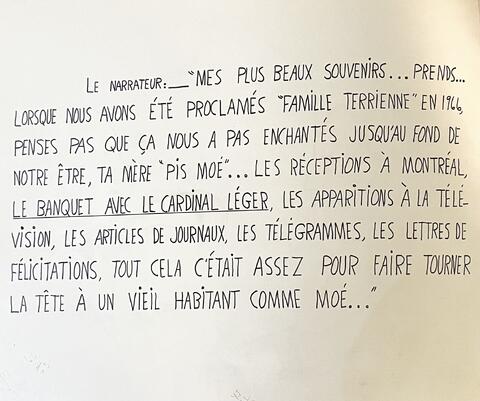 LE NARRATEUR:__"MES PLUS BEAUX SOUVENIRS...PRENDS...
LORSQUE NOUS AVONS ÉTÉ PROCLAMÉS "FAMILLE TERRIENNE" EN 1966,
PENSES PAS QUE ÇA NOUS A PAS ENCHANTÉS JUSQU'AU FOND DE
NOTRE ÊTRE, TA MÈRE "PIS MOÉ"...LES RÉCEPTIONS À MONTRÉAL,
LE BANQUET AVEC LE CARDINAL LÉGER, LES APPARITIONS À LA TÉLÉ-
VISION, LES ARTICLES DE JOURNAUX, LES TÉLÉGRAMMES, LES LETTRES DE
FÉLICITATIONS, TOUT CELA C'ÉTAIT ASSEZ POUR FAIRE TOURNER
LA TÊTE À UN VIEIL HABITANT COMME MOÉ..."